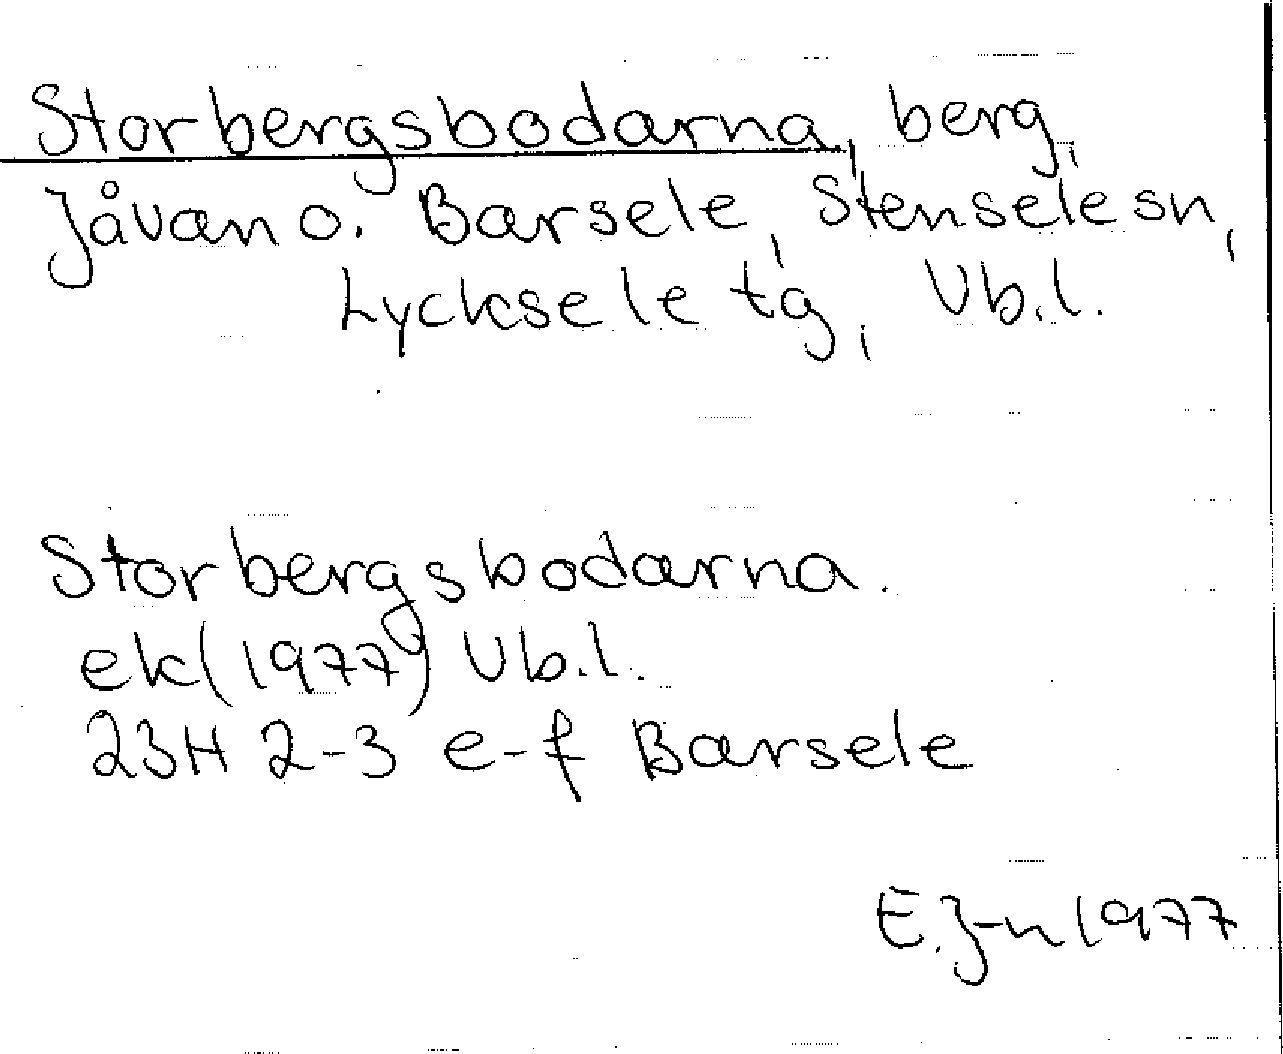 Storbergsbodarna, berg,
Jåvan o. Barsele, Stensele sn,
Lycksele tg, Vb.l.
Storbergsbodarna.
ek(1977) Vb.l.
23H 2-3 e-f Barsele
E.J-n 1977